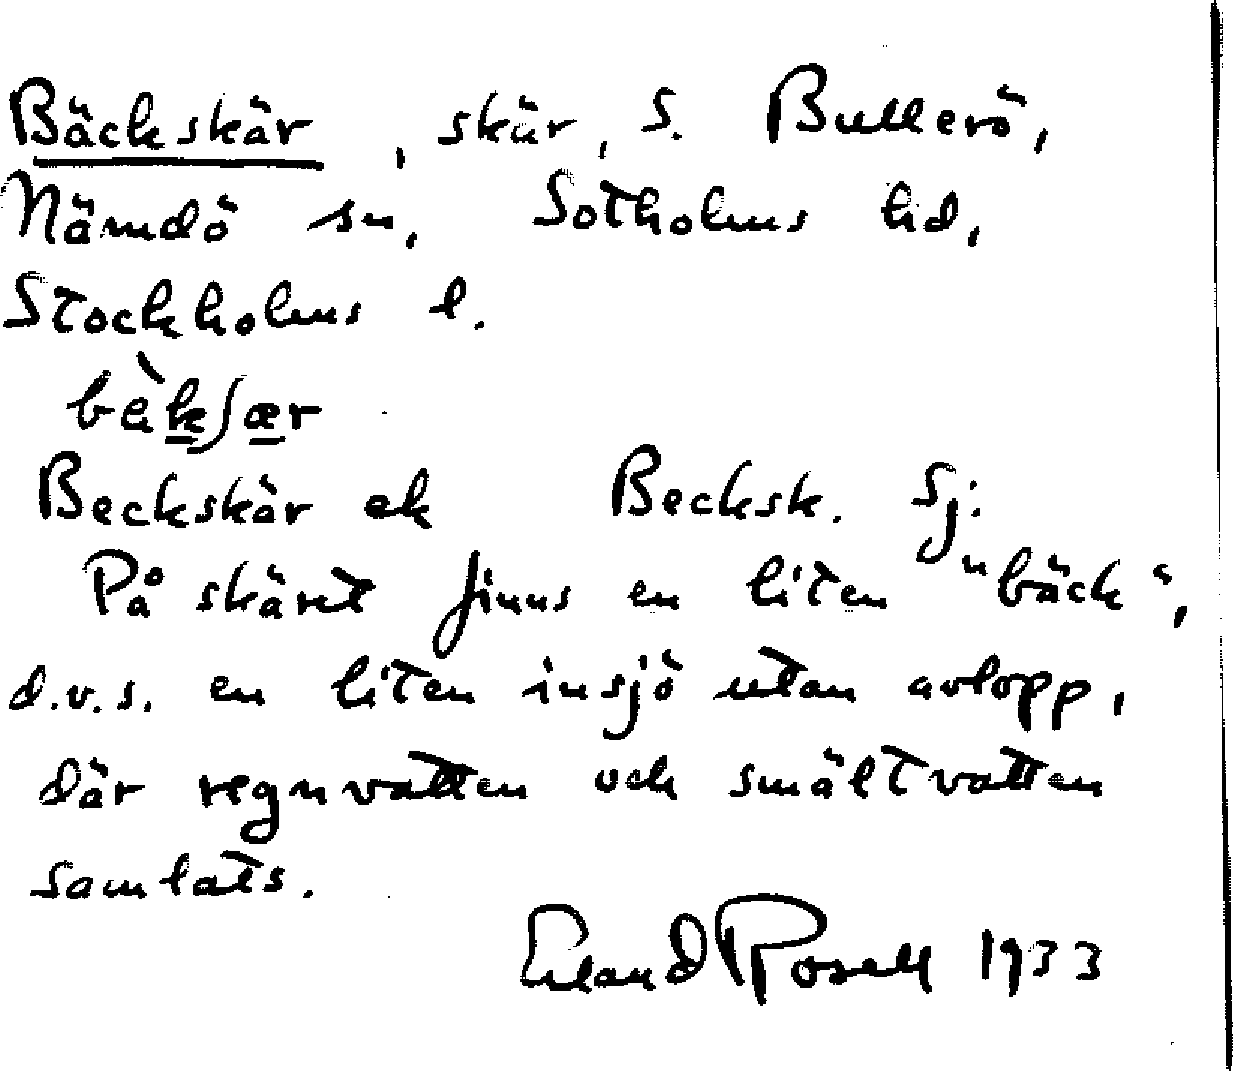 Bäckskär, skär, S. Bullerö,
Nämdö sn, Sotholms hd,
Stockholms l.
bèkʃær
Beckskär ek Becksk. Sj.
På skäret finns en liten "bäck",
d.v.s. en liten insjö utan avlopp,
där regnvatten och smältvatten
samlats.
Erland Rosell 1933